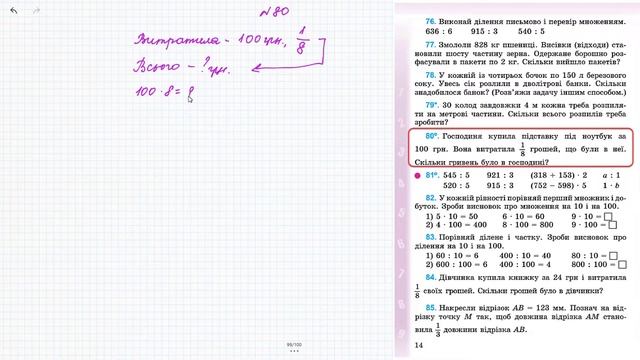 №80
Витратила – 100 грн, 1/8
Всього – ? грн.
100 · 8 =
99/100
76. Виконай ділення письмово і перевір множенням.
636 : 6 915 : 3 540 : 5
77. Змололи 828 кг пшениці. Висівки (відходи) ста-
новили шосту частину зерна. Одержане борошно роз-
фасували в пакети по 2 кг. Скільки вийшло пакетів?
78. У кожній із чотирьох бочок по 150 л березового
соку. Увесь сік розлили в дволітрові банки. Скільки
знадобилося банок? (Розв'яжи задачу іншим способом.)
79*. 30 колод завдовжки 4 м кожна треба розпиля-
ти на метрові частини. Скільки всього розпилів треба
зробити?
80°. Господиня купила підставку під ноутбук за
100 грн. Вона витратила 1/8 грошей, що були в неї.
Скільки гривень було в господині?
81°. 545 : 5 921 : 3 (318 + 153) · 2 a : 1
520 : 5 915 : 3 (752 – 598) · 5 1 · b
82. У кожній рівності порівняй перший множник і до-
буток. Зроби висновок про множення на 10 і на 100.
1) 5 · 10 = 50 6 · 10 = 60 9 · 10 = □
2) 4 · 100 = 400 8 · 100 = 800 9 · 100 = □
83. Порівняй ділене і частку. Зроби висновок про
ділення на 10 і на 100.
1) 60 : 10 = 6 400 : 10 = 40 80 : 10 = □
2) 600 : 100 = 6 400 : 100 = 4 800 : 100 = □
84. Дівчинка купила книжку за 24 грн і витратила
1/8 своїх грошей. Скільки грошей було в дівчинки?
85. Накресли відрізок AB = 123 мм. Познач на від-
різку точку M так, щоб довжина відрізка AM стано-
вила 1/3 довжини відрізка AB.
14